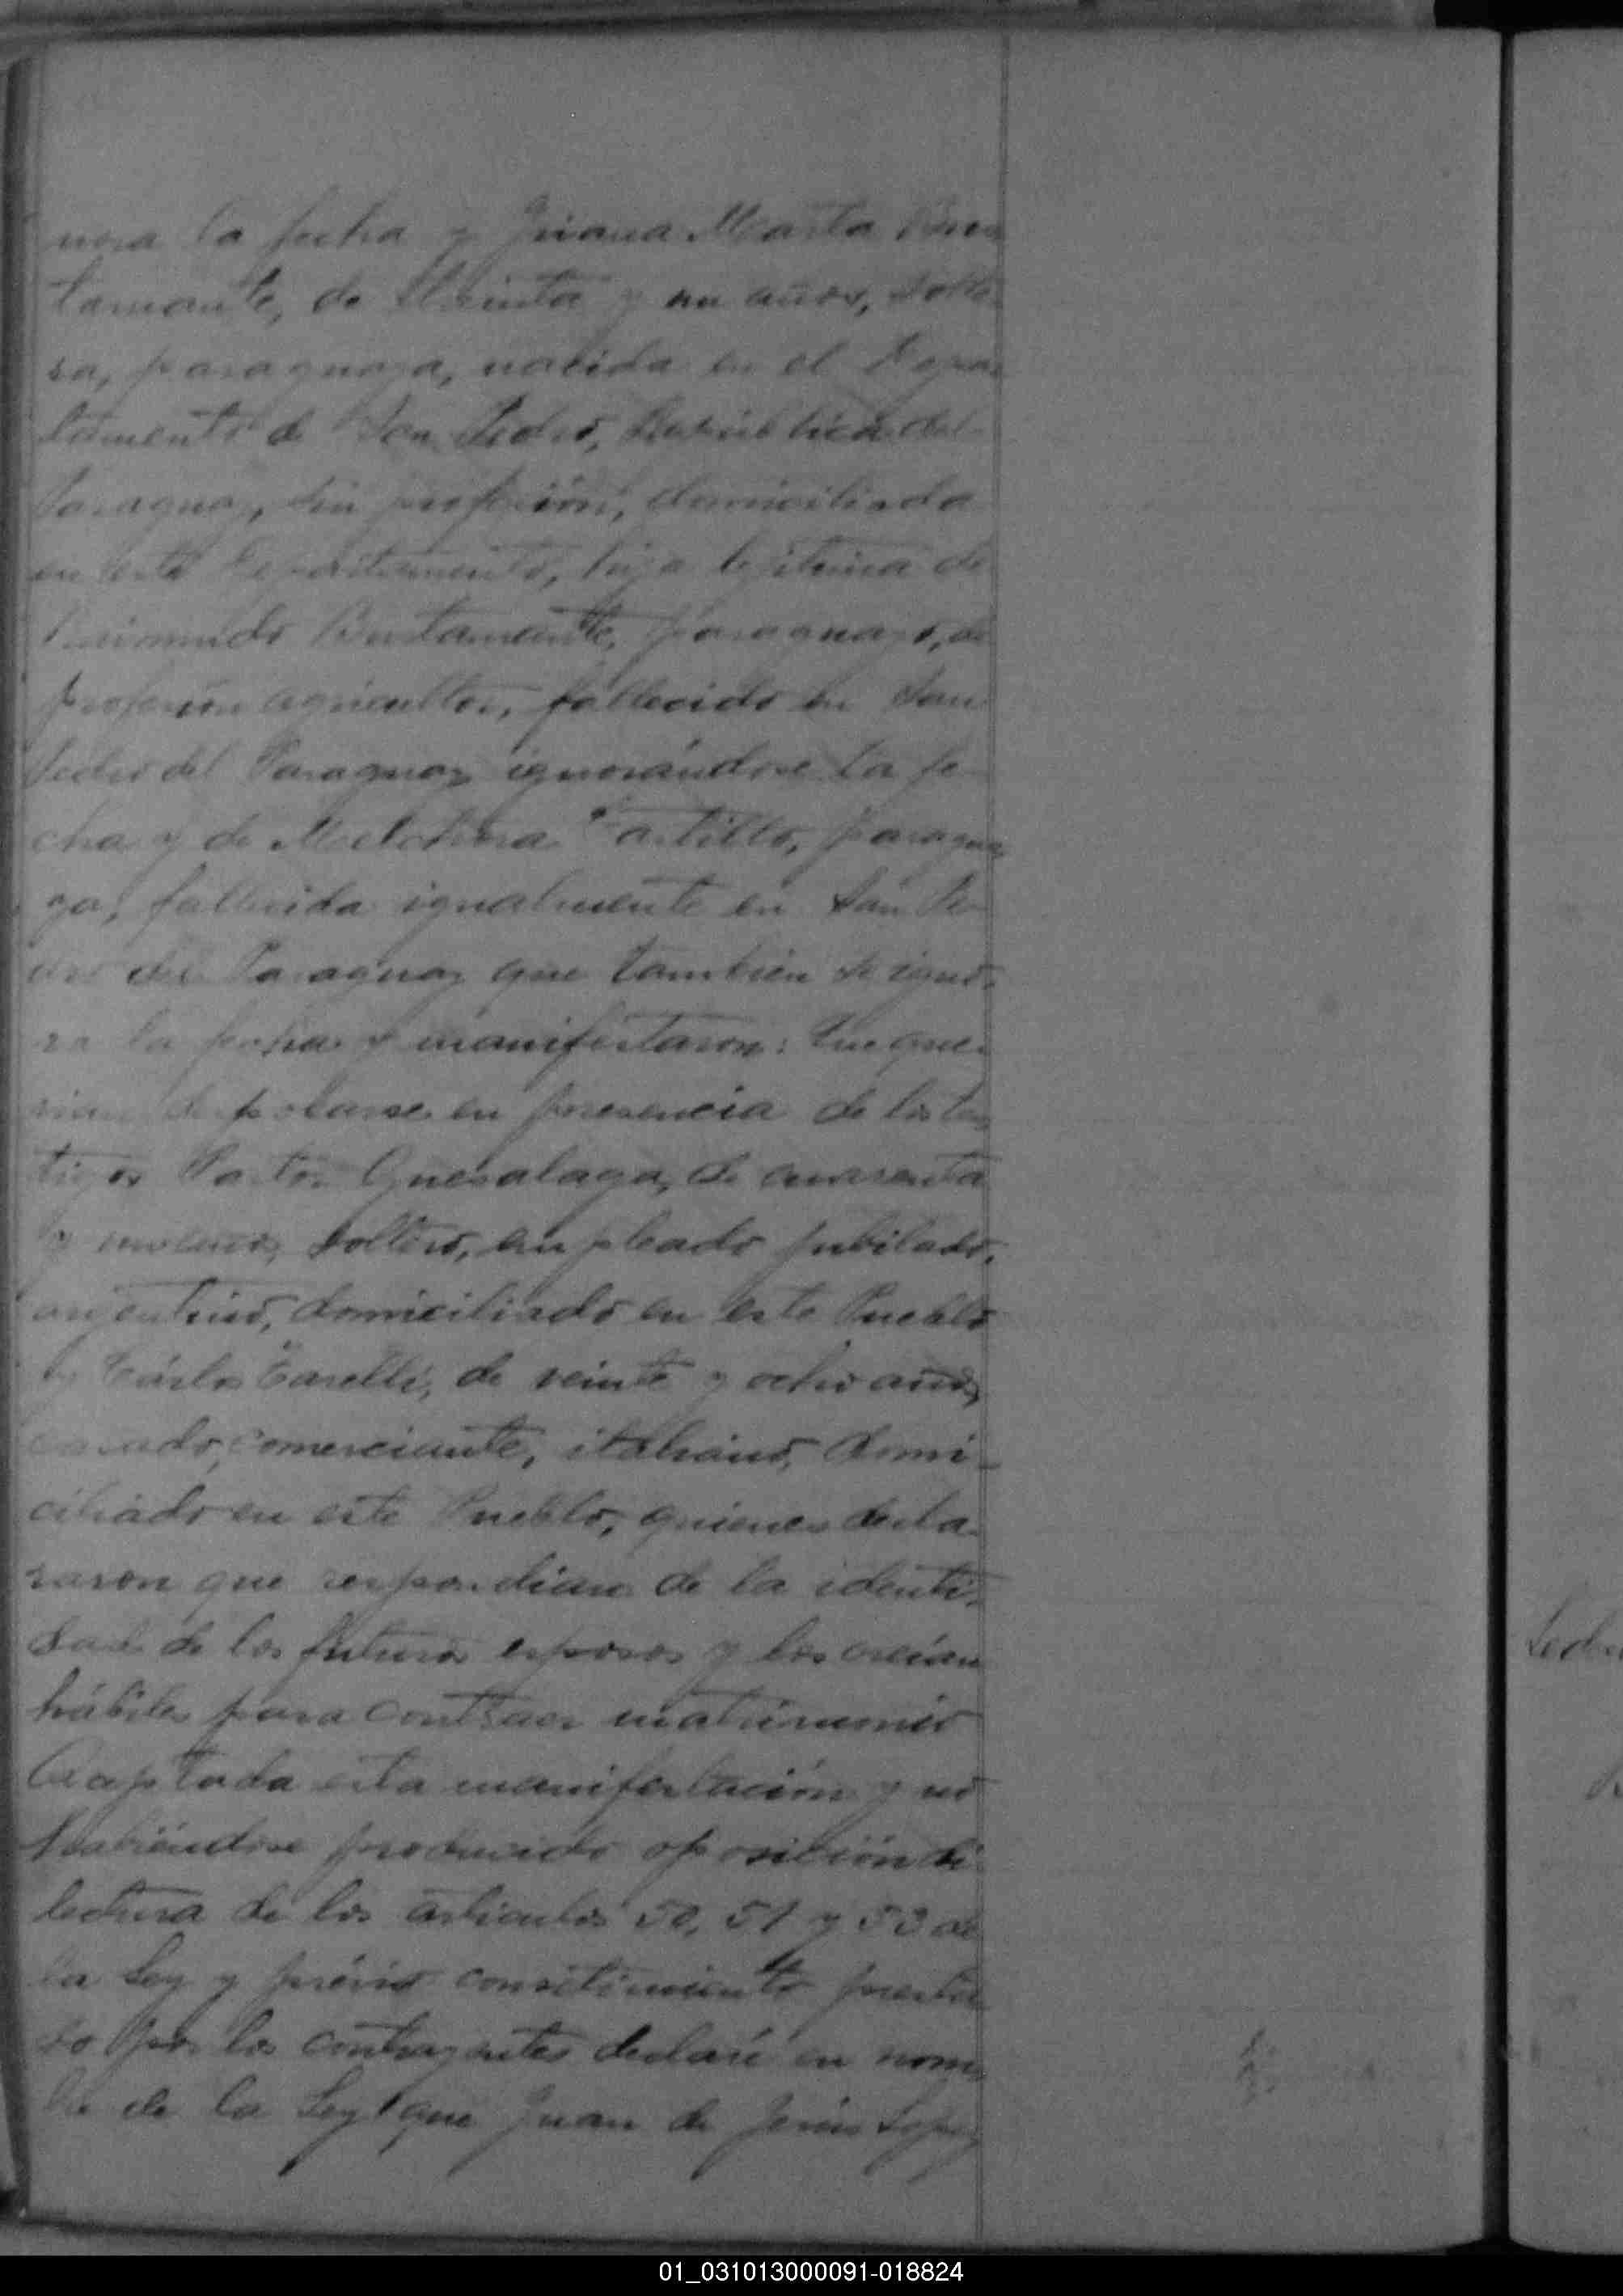 nora la fecha y Juana Marta Bus
tamante, de treinta y un años, solte
ra, paraguaya, nacida en el Depar
tamento de San Pedro, República del
Paraguay, sin profesión, domiciliada
en este Departamento, hija legitima de
Raimundo Bustamante, paraguayo, de
profesión agricultor, fallecido en San
Pedro del Paraguay ignorándose la fe
cha y de Melchora Castillo, paragua
ya, fallecida igualmente en San Pe
dro del Paraguay que tambien se igno-
ra la fecha y manifestaron: Que que-
rian desposarse en presencia de los tes
tigos Pastor Guesalaga, de cuarenta
y años, soltero, empleado jubilado,
argentino, domiciliado en este Pueblo
y Cárlos Carelli, de veinte y ocho años,
casado, comerciante, italiano, domi-
ciliado en este Pueblo, quienes decla-
raron que respondian de la identi-
dad de los futuros esposos y los creían
hábiles para contraer matrimonio
Aceptada esta manifestación y no
habiéndose producido oposición di
lectura de los articulos 50, 51 y 53 de
la Ley y prévio consetimiento presta
do por los contrayentes declaré en nom
bre de la Ley que Juan de Jesús Lopez
01_031013000091-018824